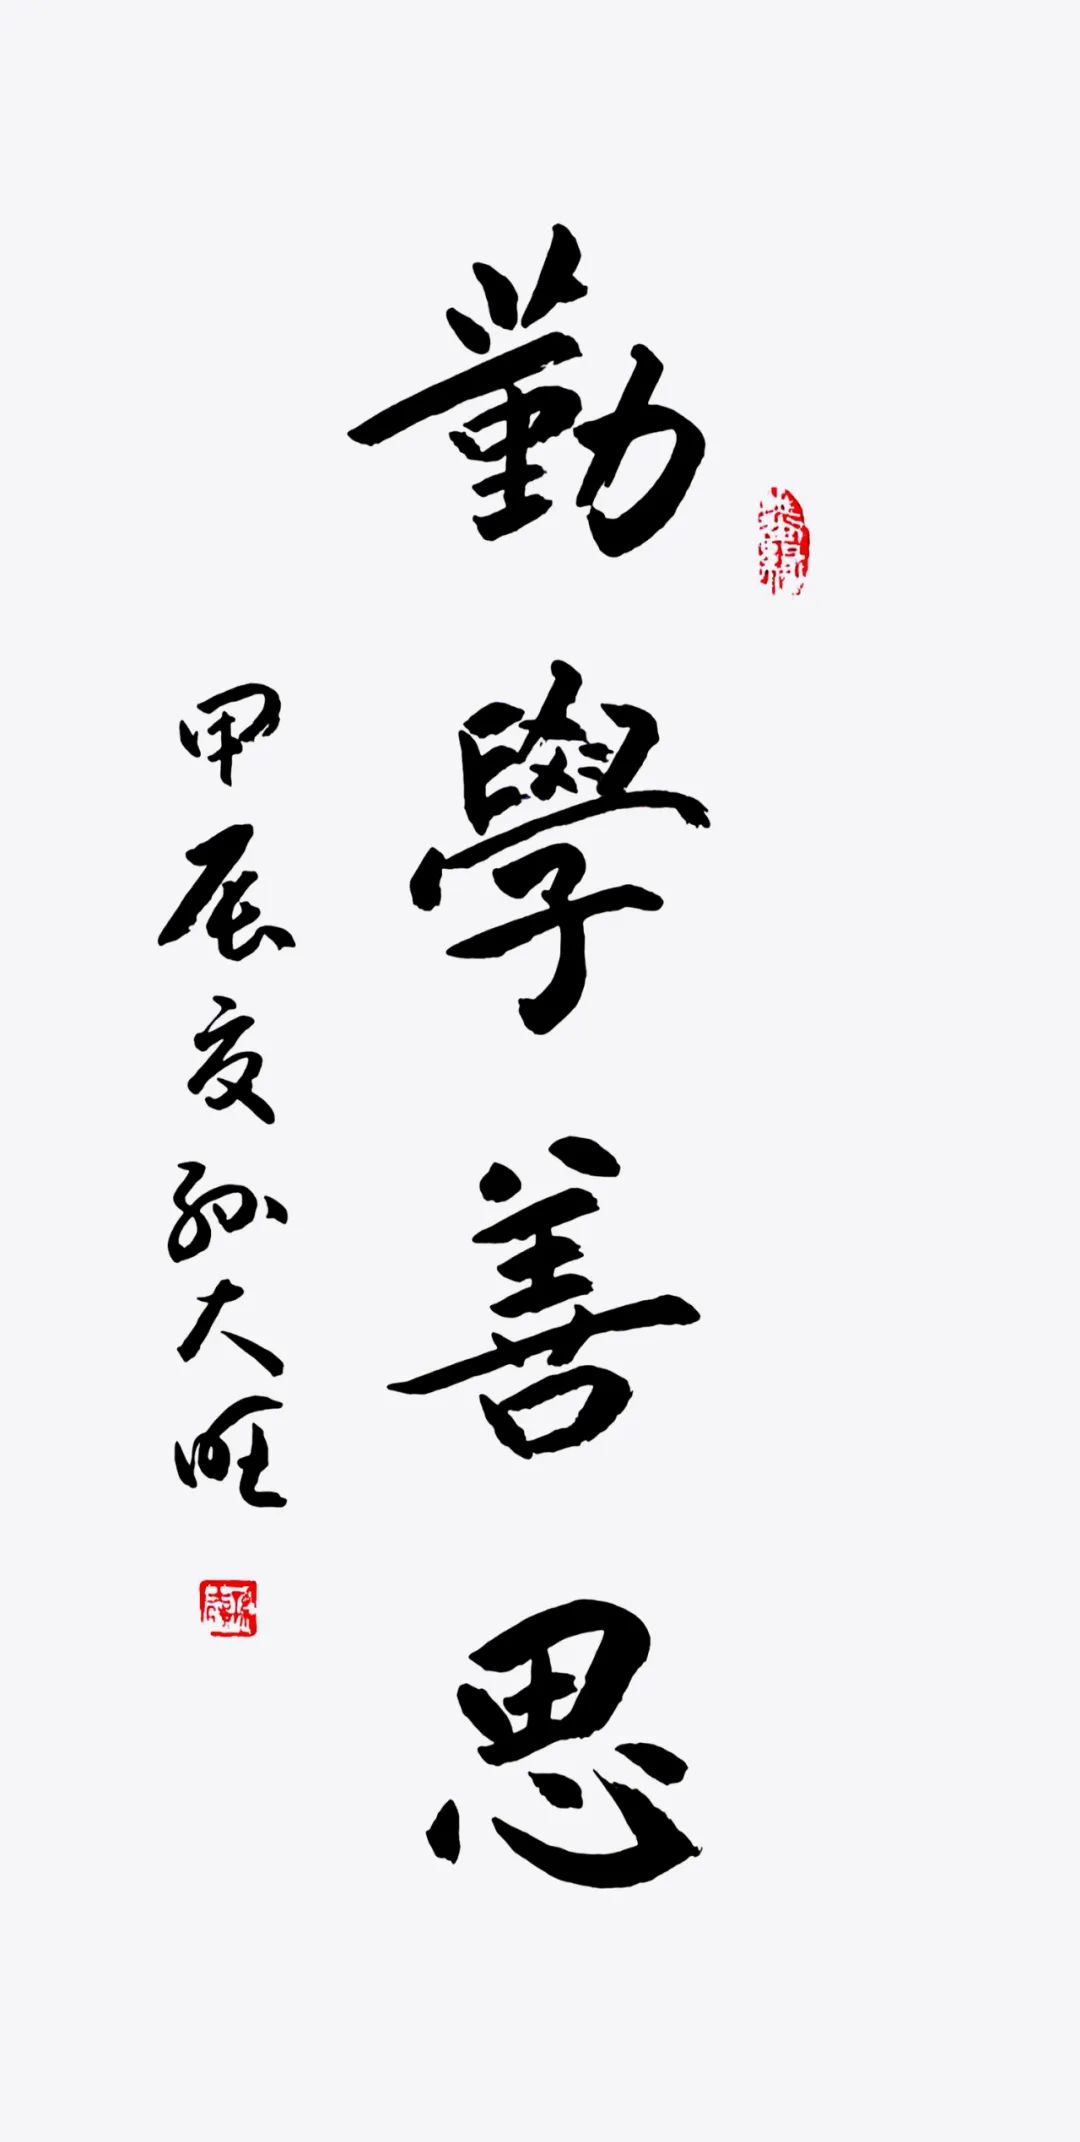 勤學善思
甲辰夏孙大旺